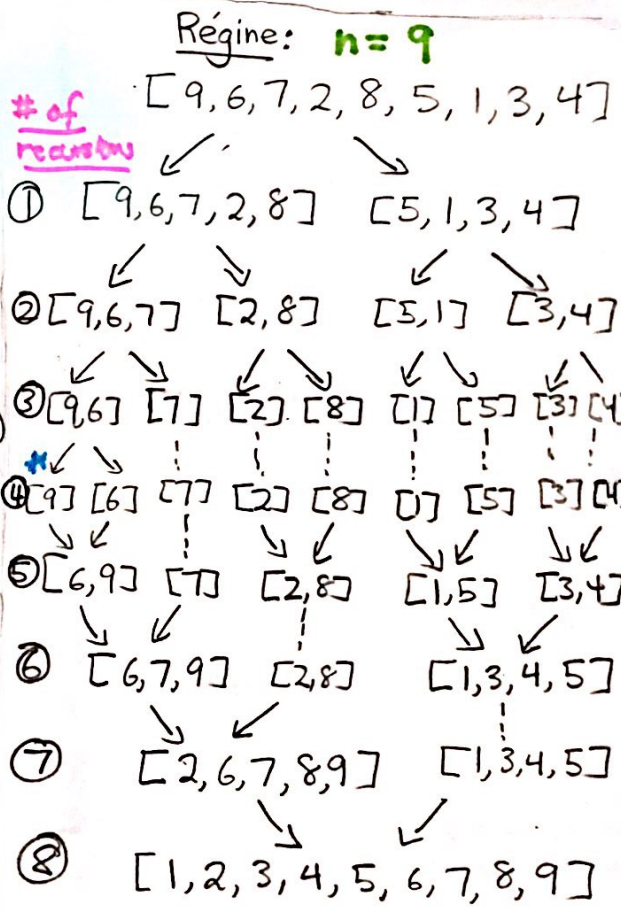 Régine: n = 9
[9, 6, 7, 2, 8, 5, 1, 3, 4]
# of
recursions
① [9, 6, 7, 2, 8] [5, 1, 3, 4]
② [9, 6, 7] [2, 8] [5, 1] [3, 4]
③ [9, 6] [7] [2] [8] [1] [5] [3] [4]
*
④ [9] [6] [7] [2] [8] [1] [5] [3] [4]
⑤ [6, 9] [7] [2, 8] [1, 5] [3, 4]
⑥ [6, 7, 9] [2, 8] [1, 3, 4, 5]
⑦ [2, 6, 7, 8, 9] [1, 3, 4, 5]
⑧ [1, 2, 3, 4, 5, 6, 7, 8, 9]